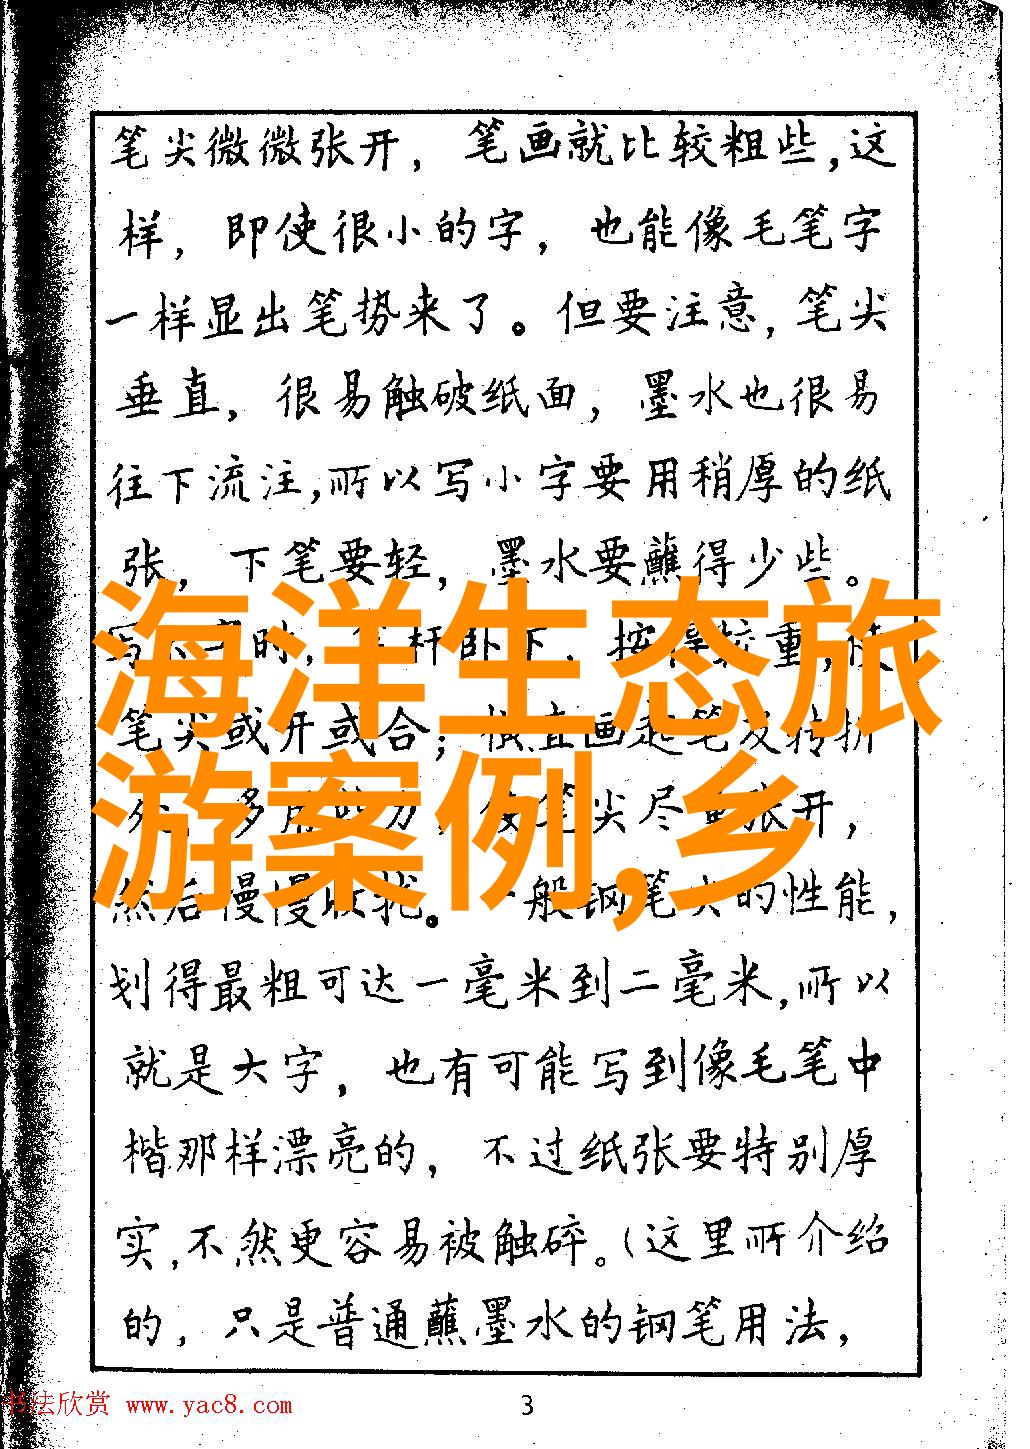 笔尖微微张开，笔画就比较粗些，这
样，即使很小的字，也能像毛笔字
一样显出笔势来了。但要注意，笔尖
垂直，很易触破纸面，墨水也很易
往下流注，所以写小字要用稍厚的纸
张，下笔要轻，墨水要蘸得少些。
海洋生态旅
游案例,乡
时，杆卧下，按得较重，使
笔尖或开或合；横直画起笔及转折
笔尖尽量张开，
然后慢慢收拢。一般钢笔尖的性能，
划得最粗可达一毫米到二毫米，所以
就是大字，也有可能写到像毛笔中
楷那样漂亮的，不过纸张要特别厚
实，不然更容易被触碎。（这里所介绍
的，只是普通蘸墨水的钢笔用法，
书法欣赏 www.yac8.com
3